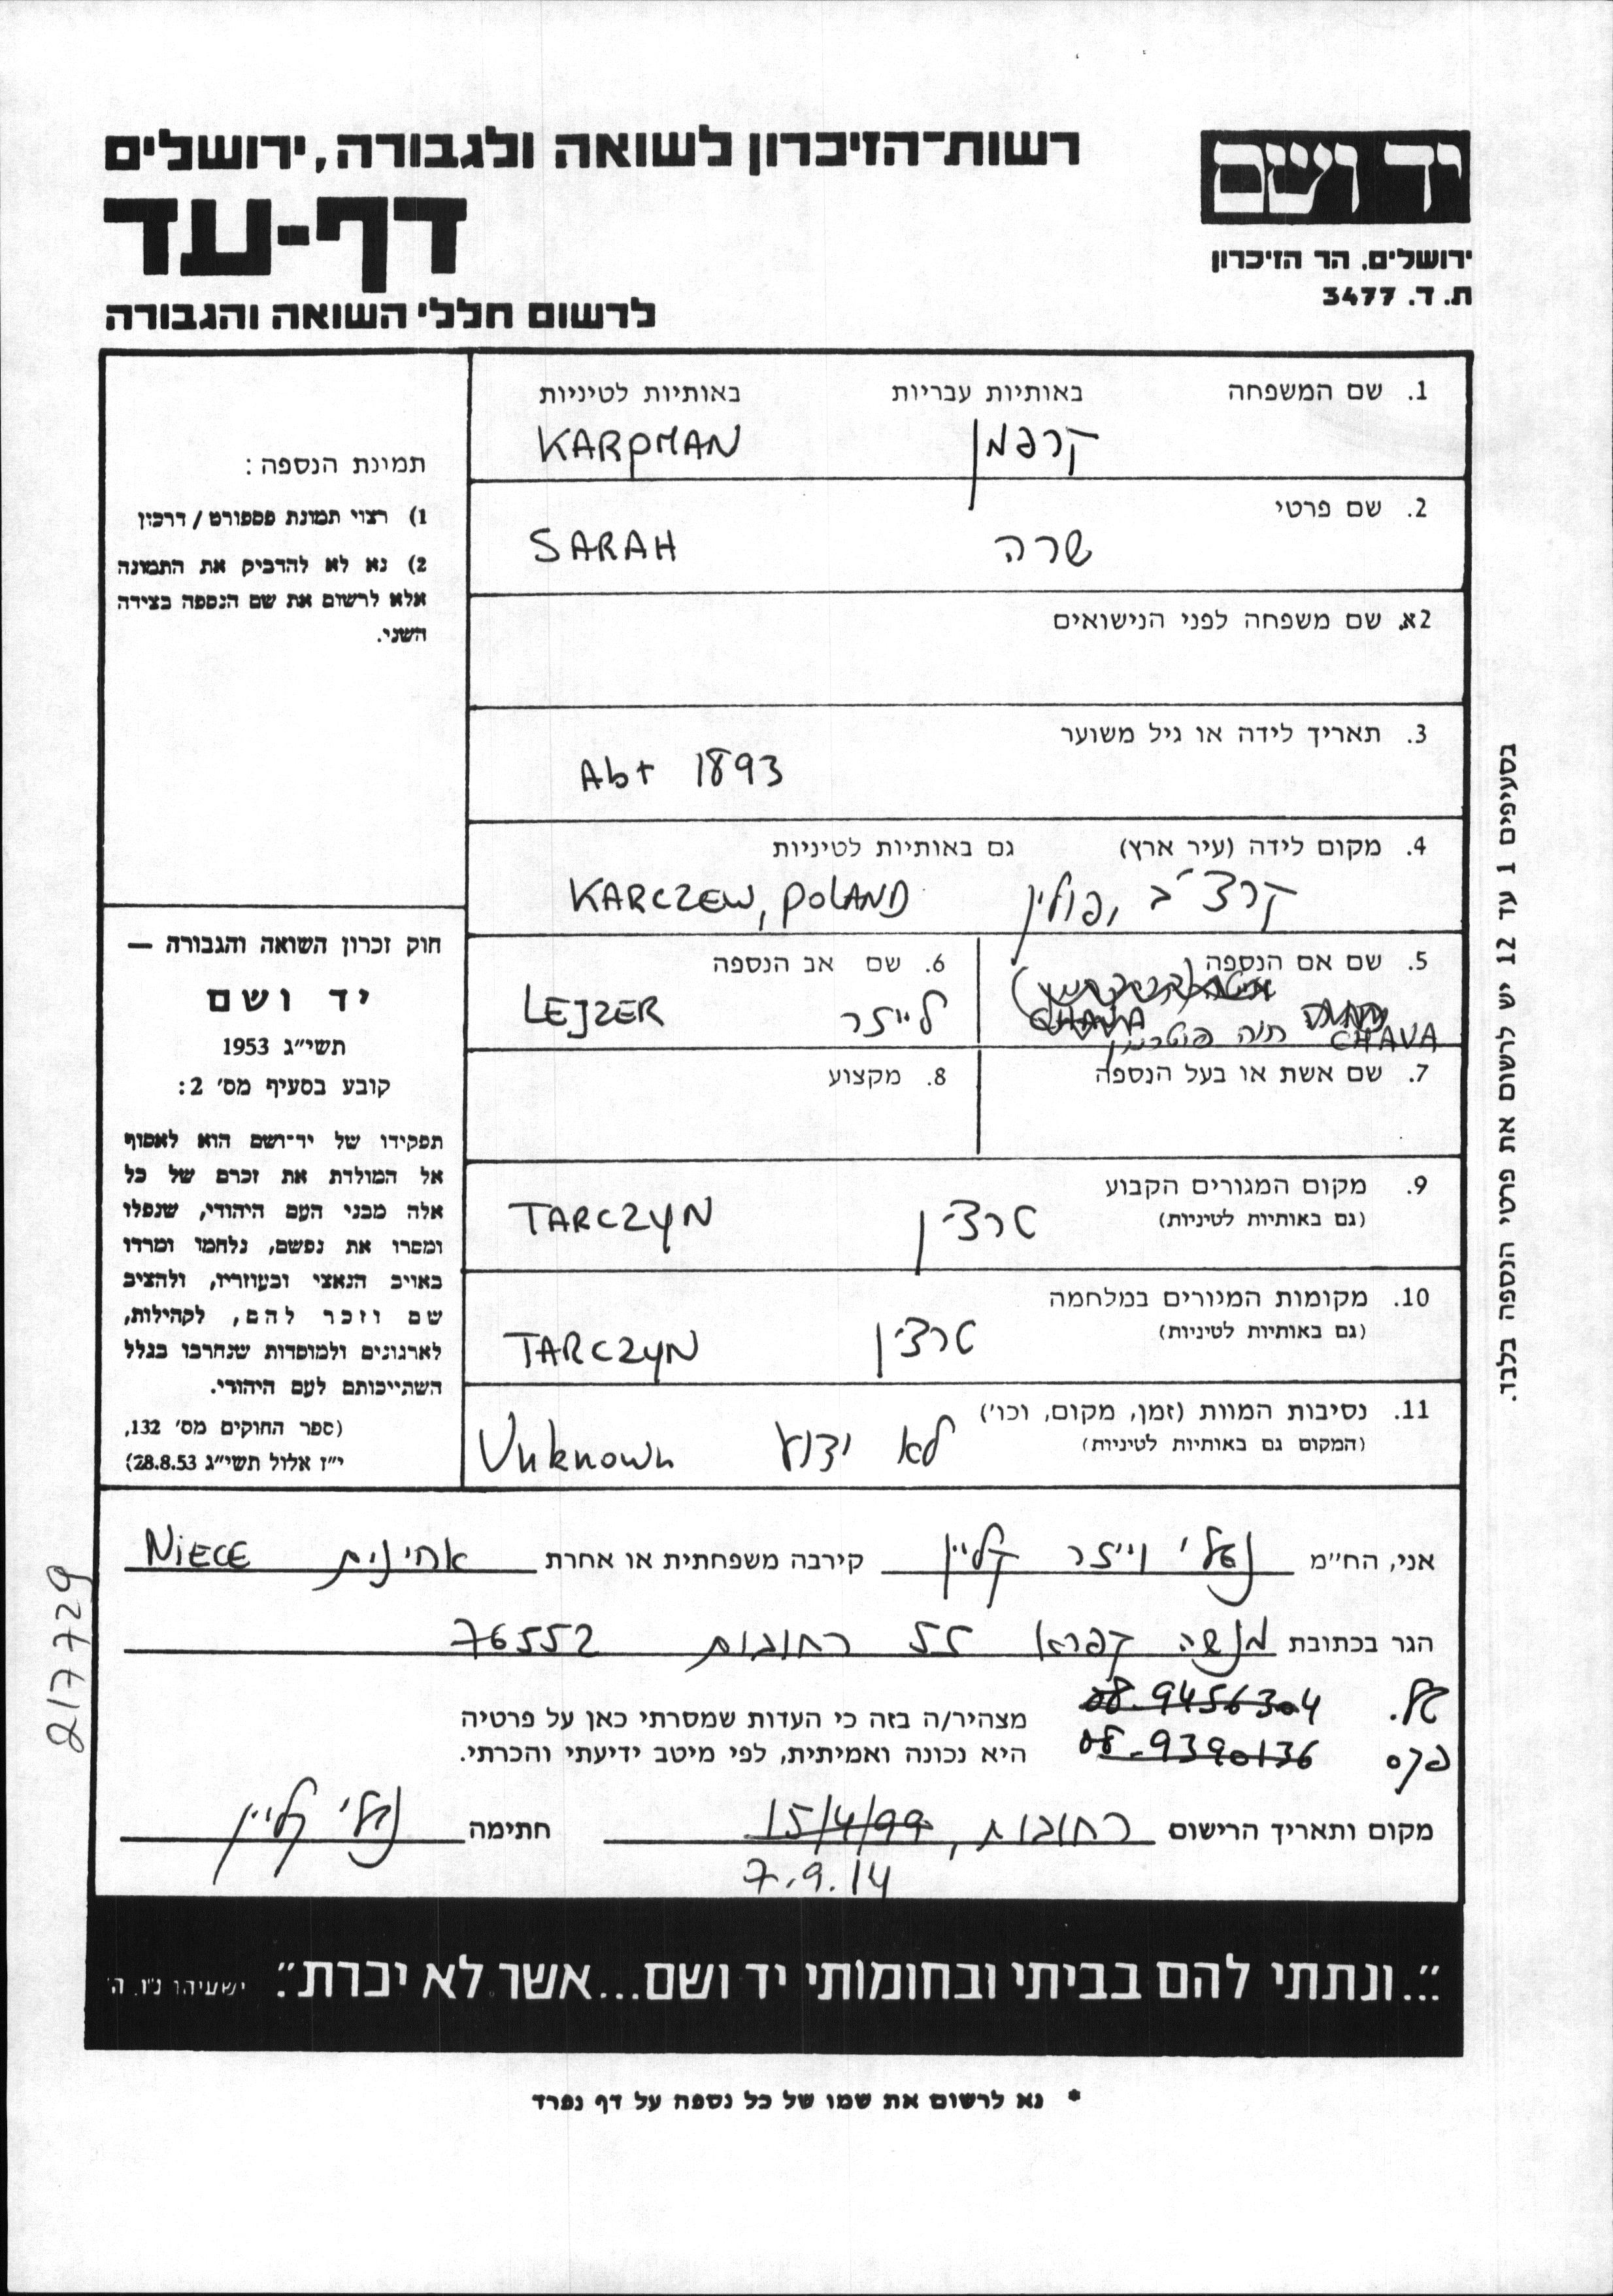 רשות־הזיכרון לשואה ולגבורה, ירושלים
דף-עד
לרשום חללי השואה והגבורה
יד ושם
ירושלים. הר הזיכרון
ת. ד. 3477
תמונת הנספה:
1) רצוי תמונת פספורט / דרכון
2) נא לא להדביק את התמונה
אלא לרשום את שם הנספה בצידה
השני.
חוק זכרון השואה והגבורה —
יד ושם
תשי״ג 1953
קובע בסעיף מס׳ 2:
תפקידו של יד־ושם הוא לאסוף
אל המולדת את זכרם של כל
אלה מבני העם היהודי, שנפלו
ומסרו את נפשם, נלחמו ומרדו
באויב הנאצי ובעוזריו, ולהציב
שם וזכר להם, לקהילות,
לארגונים ולמוסדות שנחרבו בגלל
השתייכותם לעם היהודי.
(ספר החוקים מס׳ 132,
י״ז אלול תשי״ג 28.8.53)
1. שם המשפחה באותיות עבריות באותיות לטיניות
קרפמן KARPMAN
2. שם פרטי
שרה SARAH
2א. שם משפחה לפני הנישואים
3. תאריך לידה או גיל משוער
Abt 1893
4. מקום לידה (עיר ארץ) גם באותיות לטיניות
קרצ׳ב, פולין KARCZEW, POLAND
5. שם אם הנספה 6. שם אב הנספה
CHAVA חיה CHAVA לייזר LEJZER
7. שם אשת או בעל הנספה 8. מקצוע
9. מקום המגורים הקבוע
(גם באותיות לטיניות)
טרצ׳ין TARCZYN
10. מקומות המגורים במלחמה
(גם באותיות לטיניות)
טרצ׳ין TARCZYN
11. נסיבות המוות (זמן, מקום, וכו׳)
(המקום גם באותיות לטיניות)
לא ידוע Unknown
אני, הח״מ נטלי וייזר קליין קירבה משפחתית או אחרת אחינית NIECE
הגר בכתובת מנשה קפרא רחובות 76552
טל. 08-9456304
מצהיר/ה בזה כי העדות שמסרתי כאן על פרטיה
פקס 08-9390136
היא נכונה ואמיתית, לפי מיטב ידיעתי והכרתי.
מקום ותאריך הרישום רחובות, 15/4/99 חתימה נטלי קליין
7.9.14
"...ונתתי להם בביתי ובחומותי יד ושם...אשר לא יכרת". ישעיהו נ״ו, ה׳
* נא לרשום את שמו של כל נספה על דף נפרד
בסעיפים 1 עד 12 יש לרשום את פרטי הנספה בלבד.
8217729